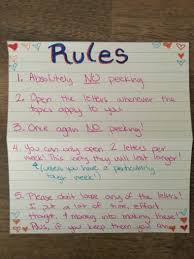 Rules
1. Absolutely NO peeking
2. Open the letters whenever the
topics apply to you
3. Once again NO pecking!
4. You can only open 2 letters per
week! This way they will last longer
(unless you have a particularly
tough week!)
5. Please don't lose any of the letters!
I put a lot of time, effort,
thought, & money into making these!
Plus, if you keep them you